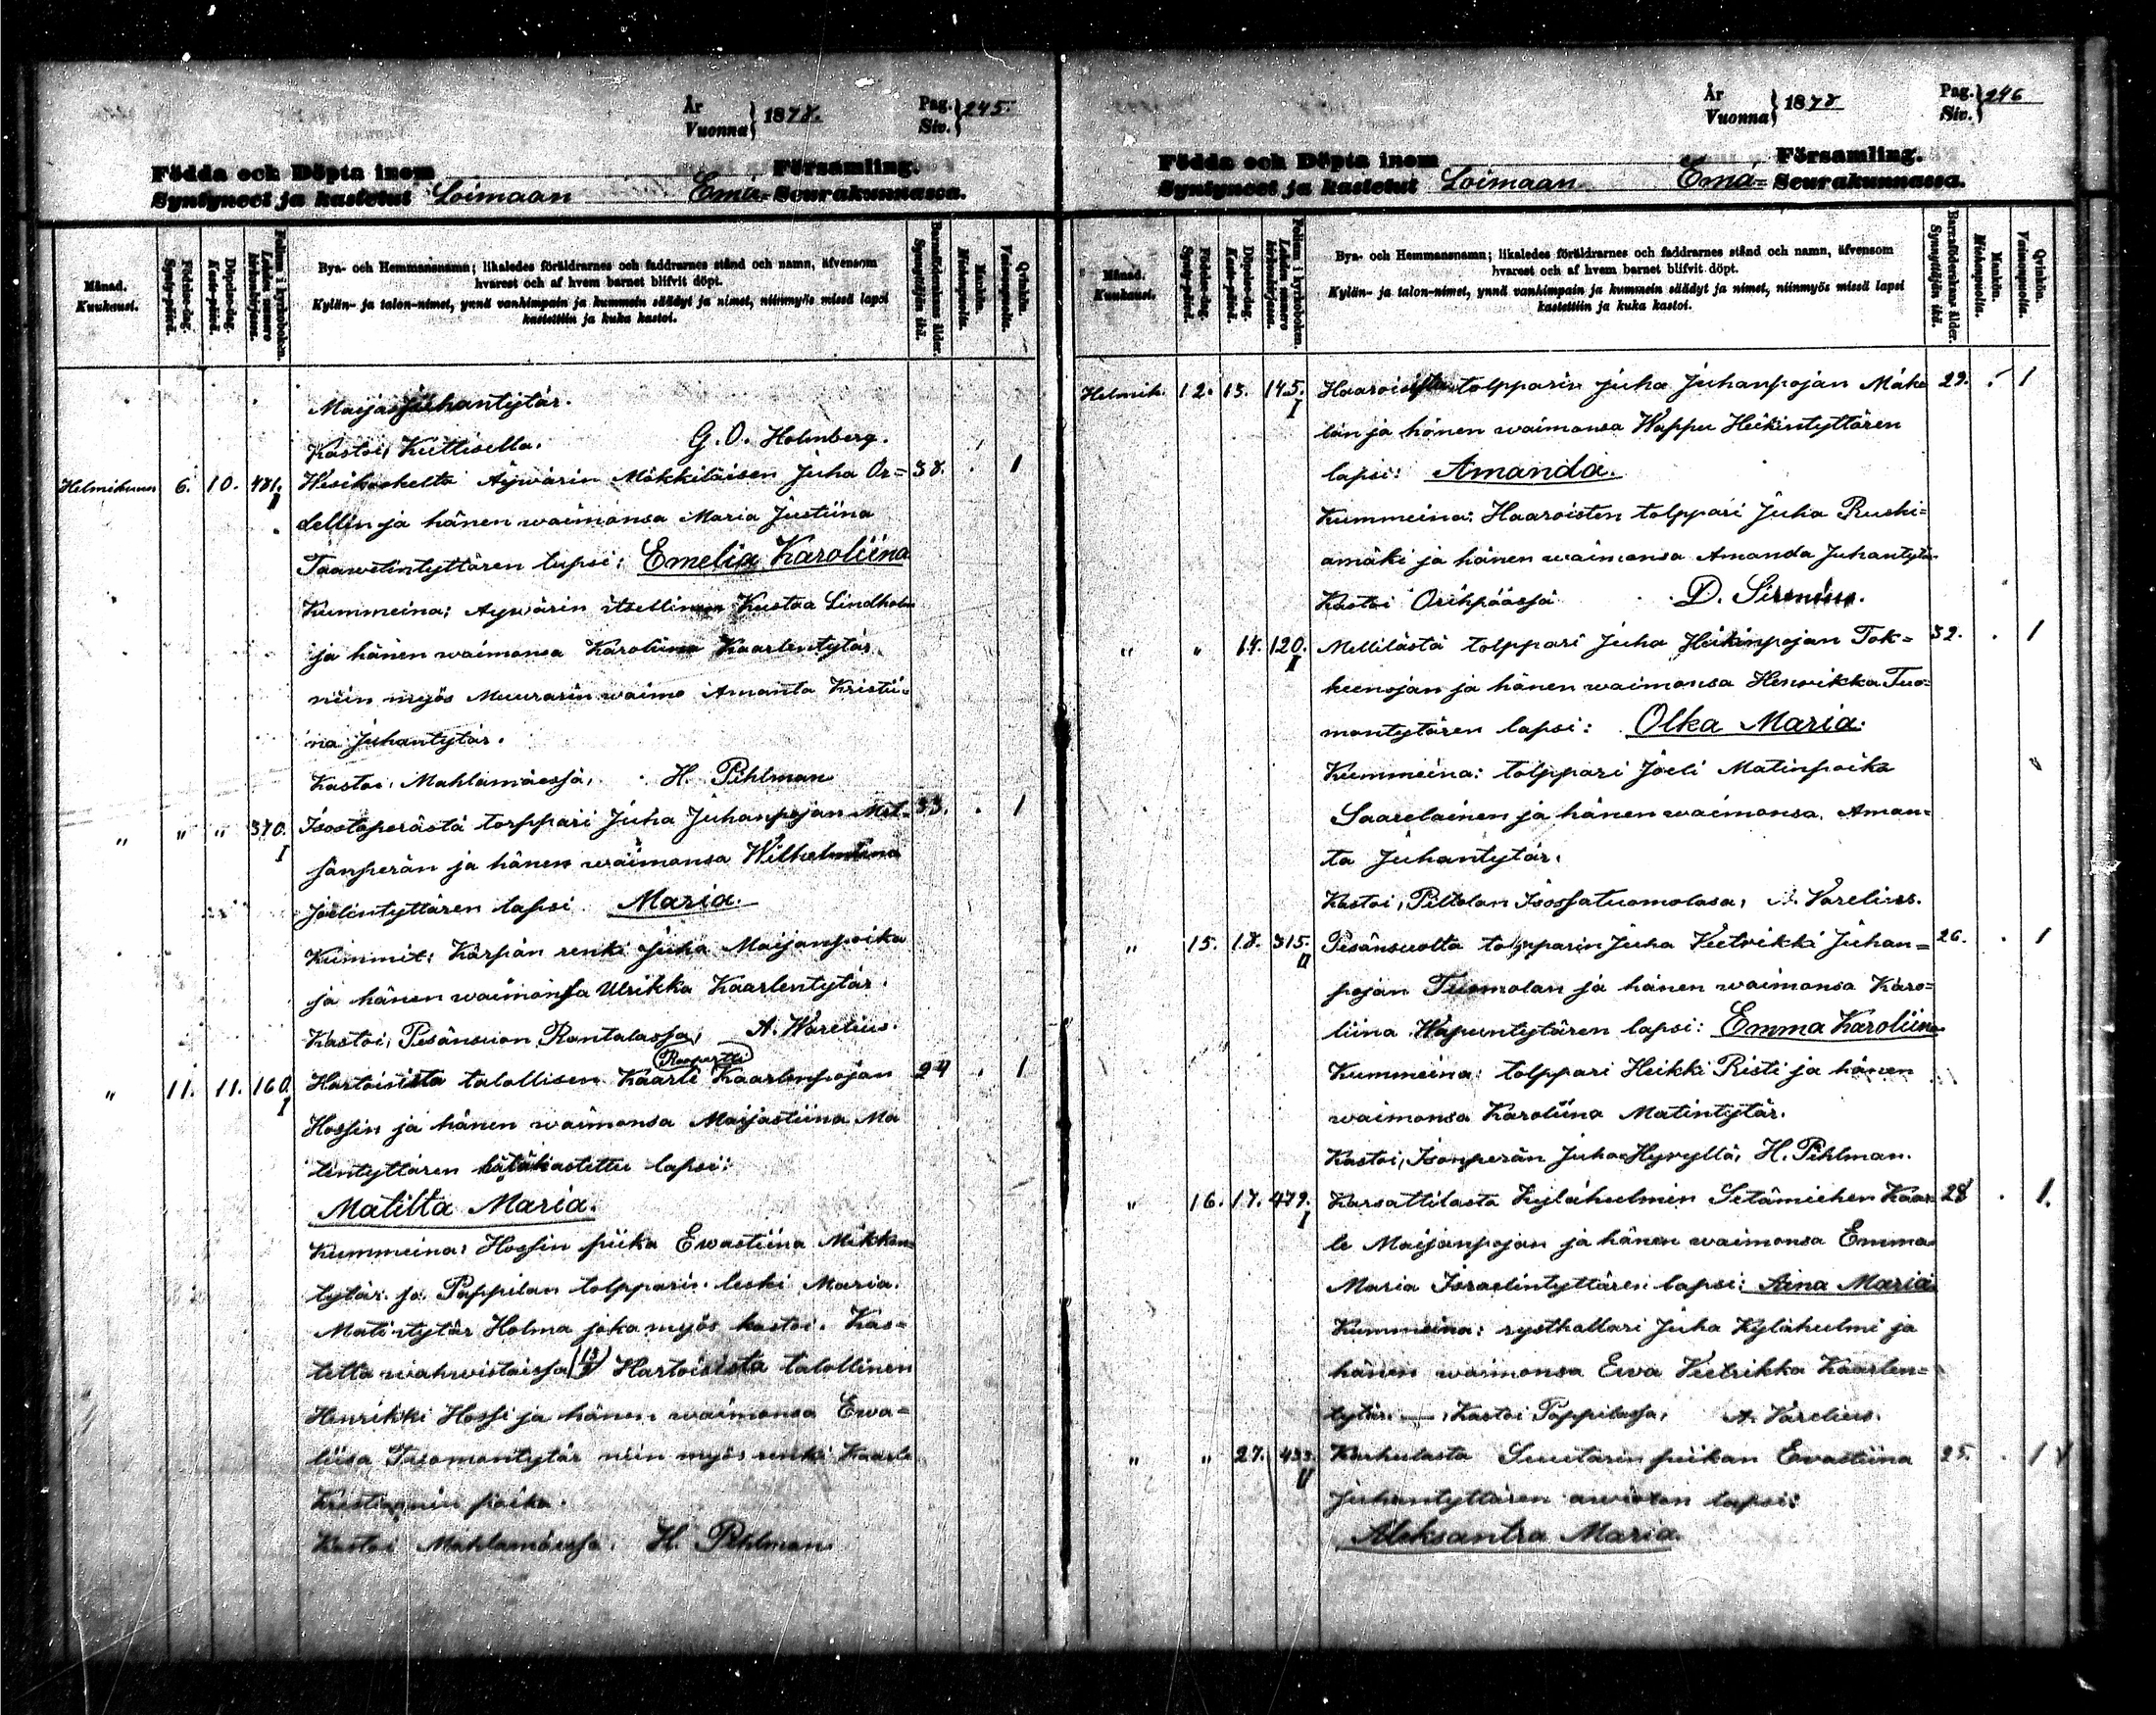 År
Vuonna} 1878.
Pag.
Siv.} 245.
Födda och Döpta inom Församling.
Syntyneet ja kastetut Loimaan Emä-Seurakunnassa.
Månad.
Kuukausi.
Födelse-dag.
Synty-päivä.
Döpelse-dag.
Kaste-päivä.
Folium i kyrkoboken.
Lehden numero kirkonkirjassa.
Bya- och Hemmansnamn; likaledes föräldrarnes och faddrarnes stånd och namn, äfvensom
hvarest och af hvem barnet blifvit döpt.
Kylän- ja talon-nimet, ynnä vanhimpain ja kummein säädyt ja nimet, niinmyös missä lapsi
kastettiin ja kuka kastoi.
Barnaföderskans ålder.
Synnyttäjän ikä.
Mankön.
Miehenpuolia.
Qvinkön.
Vaimonpuolia.
Maija Juhantytär.
Kastoi, Kuttisella. G. O. Holmberg.
Helmikuun 6. 10. 481. II Wesikoskelta Äywärin Mäkkiläisen Juha Or= 38. 1
dellin ja hänen waimonsa Maria Justiina
Taawetintyttären lapsi: Emelia Karoliina
Kummeina: Aywärin itsellinen Kustaa Lindholm
ja hänen waimonsa Karoliina Kaarlentytär
niin myös Muurarin waimo Amanta Kristii-
na Juhantytär.
Kastoi, Mahlamäessä, H. Pihlman
" " " 370. I Isostaperästä torppari Juha Juhanpojan Met- 33. 1
sänperän ja hänen waimonsa Wilhelmiina
Joelintyttären lapsi Maria.
Kummit: Kärpän renki Juha Maijanpoika
ja hänen waimonsa Ulrikka Kaarlentytär.
Kastoi, Pesänsuon Rantalassa, A. Warelius.
(Roopertti)
" 11. 11. 160. I Hartoisista talollisen Kaarle Kaarlenpojan 24 1
Hossin ja hänen waimonsa Maijastiina Ma
tintyttären hätäkastettu lapsi:
Matilta Maria.
Kummeina: Hossin piika Ewastiina Mikkon
tytär ja Pappilan tolpparin leski Maria
Matintytär Holma joka myös kastoi. Kas-
tetta wahwistaissa Hartoisista talollinen
Henrikki Hossi ja hänen waimonsa Ewa-
liisa Tuomontytär niin myös renki Kaarle
Kristianin poika.
Kastoi Mahlamäessä. H. Pihlman.
År
Vuonna} 1878
Pag.
Siv.} 246
Födda och Döpta inom Församling.
Syntyneet ja kastetut Loimaan Emä-Seurakunnassa.
Månad.
Kuukausi.
Födelse-dag.
Synty-päivä.
Döpelse-dag.
Kaste-päivä.
Folium i kyrkoboken.
Lehden numero kirkonkirjassa.
Bya- och Hemmansnamn; likaledes föräldrarnes och faddrarnes stånd och namn, äfvensom
hvarest och af hvem barnet blifvit döpt.
Kylän- ja talon-nimet, ynnä vanhimpain ja kummein säädyt ja nimet, niinmyös missä lapsi
kastettiin ja kuka kastoi.
Barnaföderskans ålder.
Synnyttäjän ikä.
Mankön.
Miehenpuolia.
Qvinkön.
Vaimonpuolia.
Helmik. 12. 13. 145. I Haaroisista tolpparin Juha Juhanpojan Mäke 29. 1
län ja hänen waimonsa Wappu Heikintyttären
lapsi: Amanda.
Kummeina: Haaroisten tolppari Juha Ruski-
amäki ja hänen waimonsa Amanda Juhantytär
Kastoi Orihpäässä D. Sirenius.
" " 14. 120. I Mellilästä tolppari Juha Heikinpojan Tok= 32. 1
keenojan ja hänen waimonsa Henrikka Tuo-
montytären lapsi: Olka Maria.
Kummeina: tolppari Joeli Matinpoika
Saarelainen ja hänen waimonsa, Aman-
ta Juhantytär.
Kastoi, Piltolan Isossatuomolasa, A. Varelius.
" 15. 18. 315. II Pesänsuolta tolpparin Juha Vietrikki Juhan= 26. 1
pojan Tuomolan ja hänen waimonsa Karo-
liina Wapuntytären lapsi: Emma Karoliina
Kummeina: tolppari Heikki Risti ja hänen
waimonsa Karoliina Matintytär.
Kastoi, Isonperän Juha Hyryllä, H. Pihlman.
" 16. 17. 479. I Karsattilasta Kylähulmin Setämiehen Kaar 28 1.
le Maijanpojan ja hänen waimonsa Emma
Maria Israelintyttären lapsi: Aina Maria
Kummeina: rysthallari Juha Kylähulmi ja
hänen waimonsa Ewa Vietrikka Kaarlen=
tytär. —, Kastoi Pappilassa, A. Varelius.
" " 27. 433. II Karhulasta Suutarin piikan Ewastiina 25. 1
Juhantyttären awioton lapsi:
Aleksantra Maria